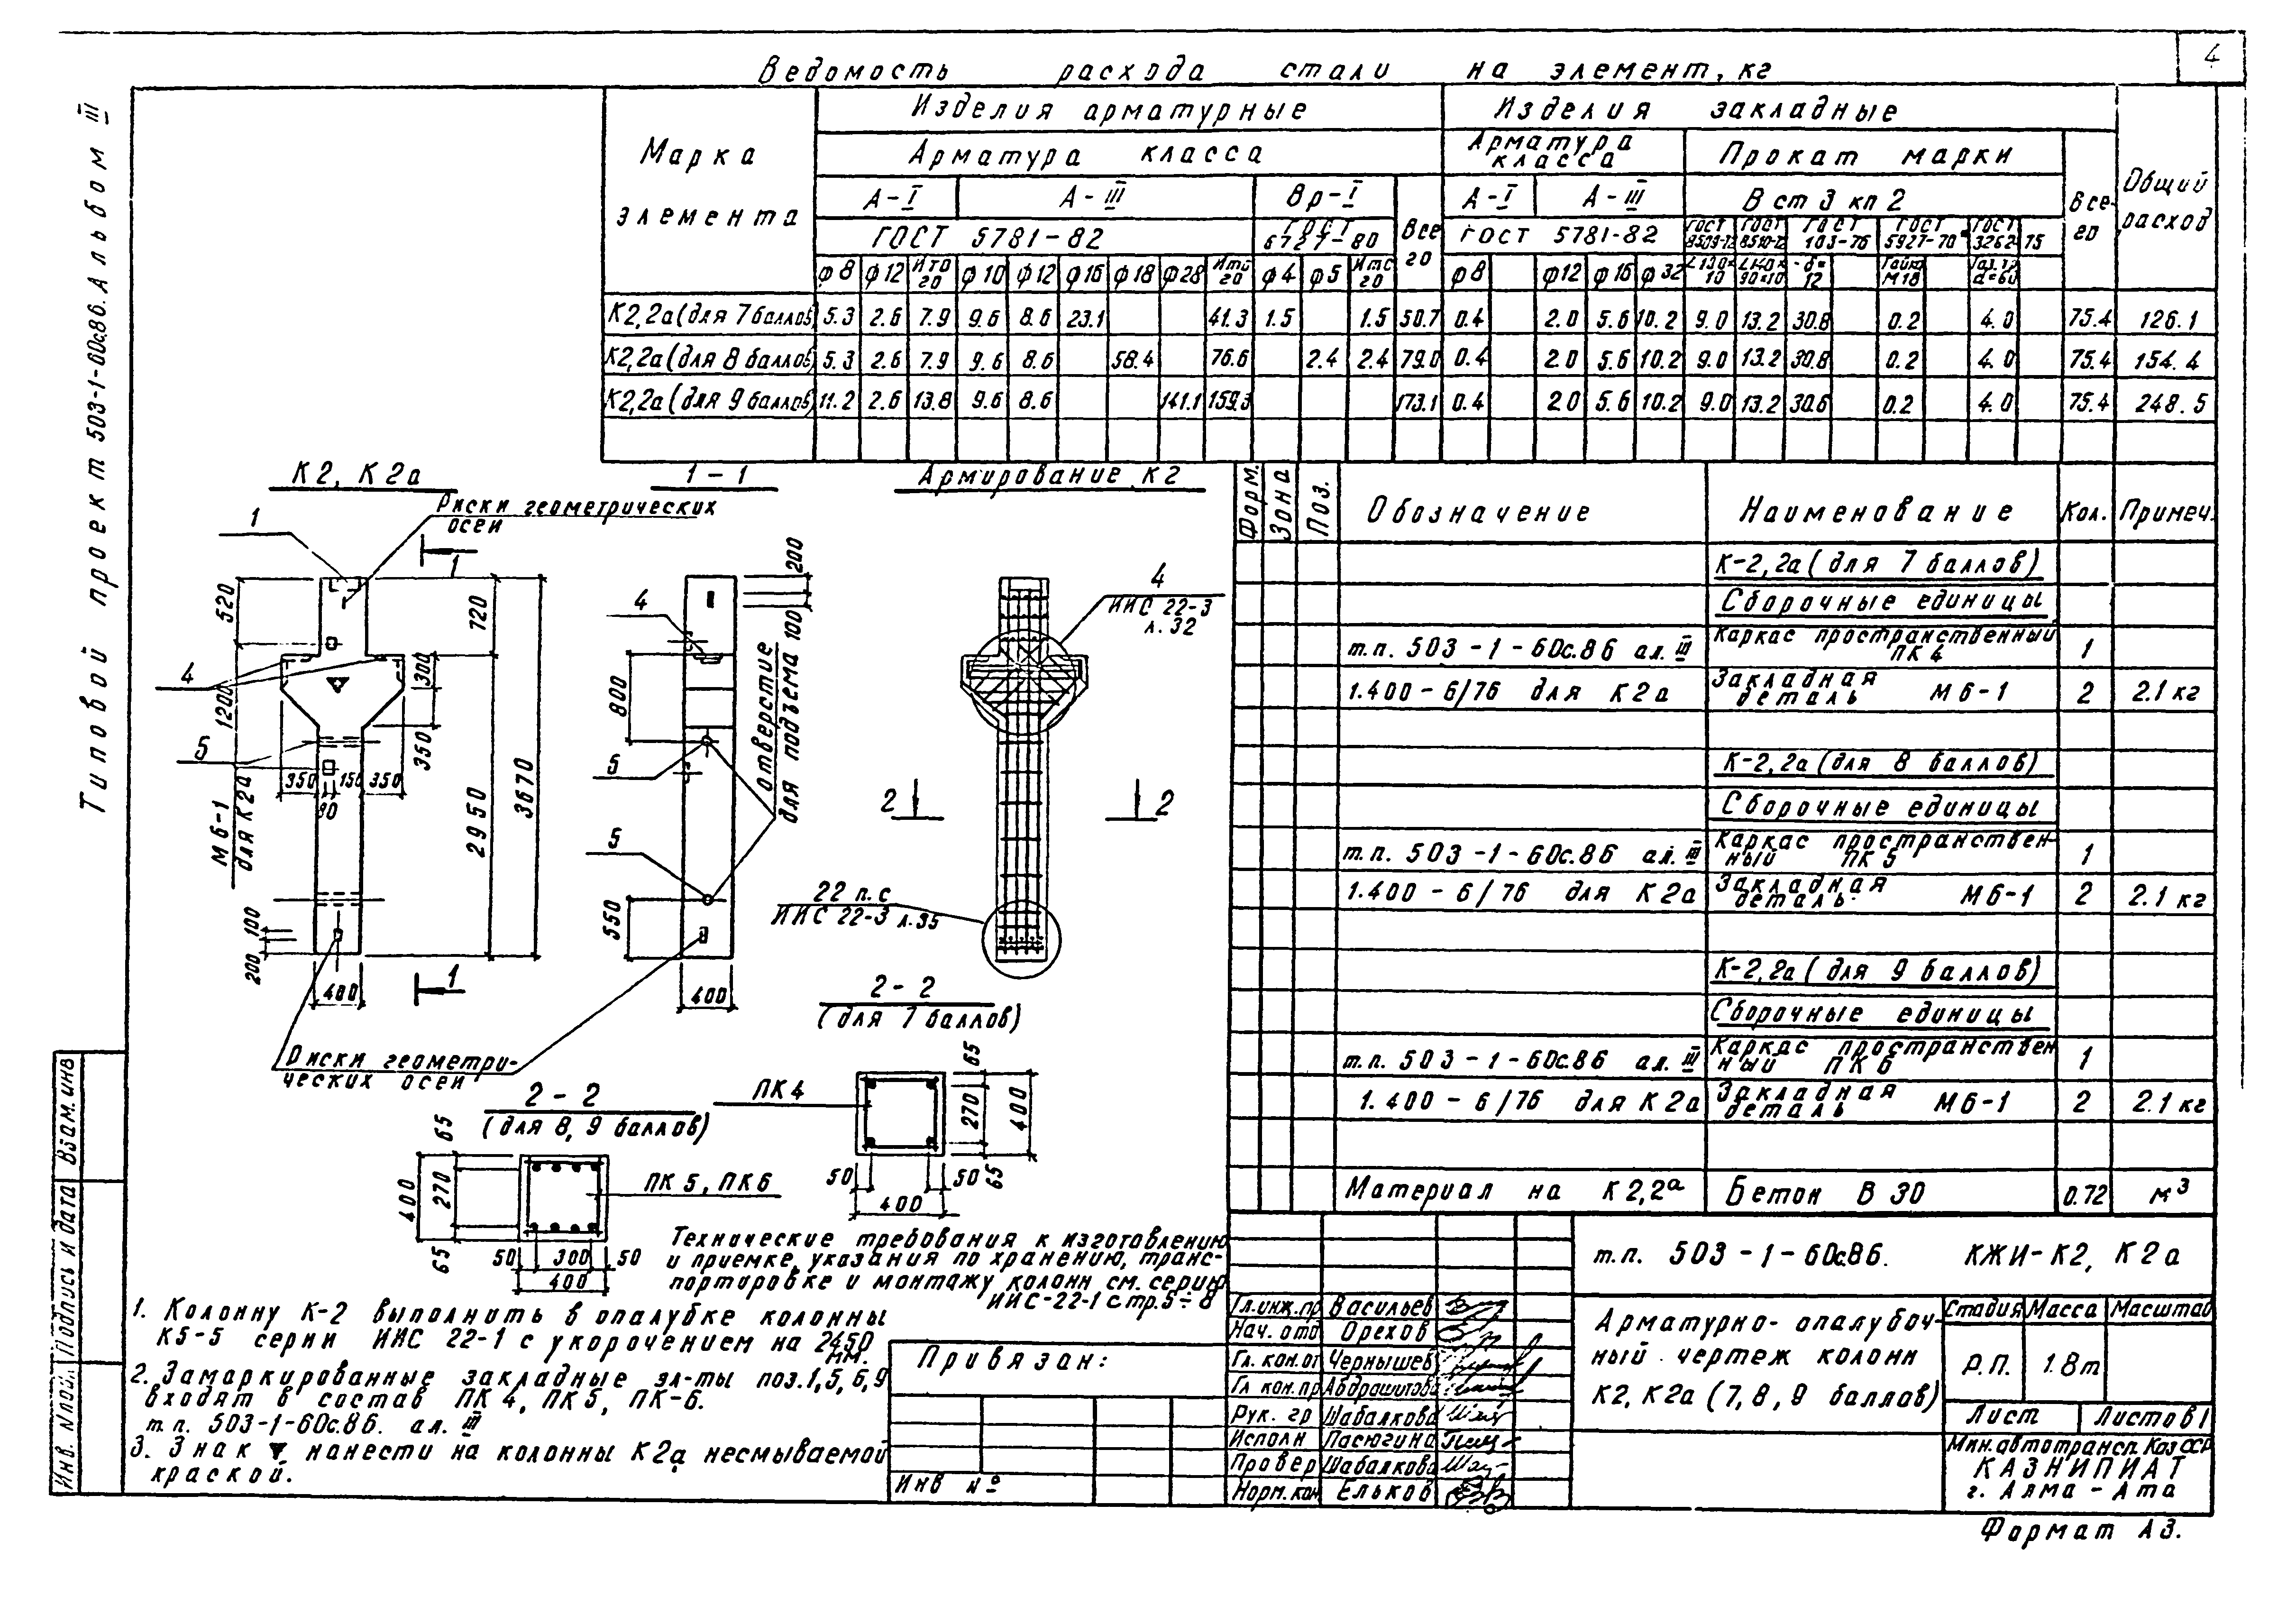 4
Ведомость расхода стали на элемент, кг
Типовой проект 503-1-60с.86. Альбом III
Марка элемента
Изделия арматурные
Изделия закладные
Общий расход
Арматура класса
Арматура класса
Прокат марки
Всего
А-I А-III Вр-I
Всего
А-I А-III
В ст 3 кп 2
ГОСТ 5781-82
ГОСТ 6727-80
ГОСТ 5781-82
ГОСТ 8509-72
ГОСТ 8510-72
ГОСТ 103-76
ГОСТ 5927-70*
ГОСТ 3262-75
ф8 ф12 Итого ф10 ф12 ф16 ф18 ф28 Итого ф4 ф5 Итого ф8 ф12 ф16 ф32 L130×10 L140×90×10 -δ=12 Гайка М18 d=60
К2,2а (для 7 баллов) 5.3 2.6 7.9 9.6 8.6 23.1 41.3 1.5 1.5 50.7 0.4 2.0 5.6 10.2 9.0 13.2 30.8 0.2 4.0 75.4 126.1
К2,2а (для 8 баллов) 5.3 2.6 7.9 9.6 8.6 58.4 76.6 2.4 2.4 79.0 0.4 2.0 5.6 10.2 9.0 13.2 30.8 0.2 4.0 75.4 154.4
К2,2а (для 9 баллов) 11.2 2.6 13.8 9.6 8.6 141.1 159.3 173.1 0.4 2.0 5.6 10.2 9.0 13.2 30.6 0.2 4.0 75.4 248.5
К2, К2а
Риски геометрических
осей
1
1
520
720
4
1200
300
5
350
350 150 350
80
М6-1
для К2а
2950
3670
100
200
400
1
1-1
200
100
4
800
отверстие
для подъема
5
5
550
400
Риски геометри-
ческих осей
Армирование К2
4
ИИС 22-3
л.32
2 2
22 п.с
ИИС 22-3 л.35
2-2
(для 7 баллов)
ПК4
65
270
400
65
50 50
400
2-2
(для 8, 9 баллов)
65
400
270
65
ПК5, ПК6
50 300 50
400
Форм. Зона Поз. Обозначение Наименование Кол. Примеч.
К-2,2а (для 7 баллов)
Сборочные единицы
т.п. 503-1-60с.86 ал. III Каркас пространственный ПК4 1
1.400-6/76 для К2а Закладная деталь М6-1 2 2.1 кг
К-2,2а (для 8 баллов)
Сборочные единицы
т.п. 503-1-60с.86 ал. III Каркас пространствен-ный ПК5 1
1.400-6/76 для К2а Закладная деталь М6-1 2 2.1 кг
К-2,2а (для 9 баллов)
Сборочные единицы
т.п. 503-1-60с.86 ал. III Каркас пространствен ный ПК6 1
1.400-6/76 для К2а Закладная деталь М6-1 2 2.1 кг
Материал на К2,2а Бетон В30 0.72 м3
Технические требования к изготовлению
и приемке, указания по хранению, транс-
портировке и монтажу колонн см. серию
ИИС-22-1 стр.5÷8
1. Колонну К-2 выполнить в опалубке колонны
К5-5 серии ИИС 22-1 с укорочением на 2450
мм.
2. Замаркированные закладные эл-ты поз.1,5,6,9
входят в состав ПК4, ПК5, ПК-6.
т.п. 503-1-60с.86. ал. III
3. Знак ▼ нанести на колонны К2а несмываемой
краской.
Взам. инв
Подпись и дата
Инв. N подл.
Привязан:
Инв №
Гл.инж.пр Васильев
Нач. отд Орехов
Гл. кон.от Чернышев
Гл кон.пр Абдрашитова
Рук. гр Шабалкова
Исполн Пасюгина
Провер Шабалкова
Норм.кон Ельков
т.п. 503-1-60с.86. КЖИ-К2, К2а
Арматурно-опалубоч-
ный чертеж колонн
К2, К2а (7, 8, 9 баллов)
Стадия Масса Масштаб
Р.П. 1.8т
Лист Листов 1
Мин.автотрансп. Каз ССР
КАЗНИПИАТ
г. Алма-Ата
Формат А3.